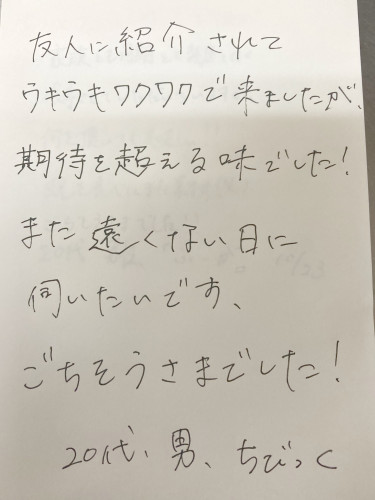 友人に紹介されて
ウキウキワクワクで来ましたが、
期待を超える味でした!
また遠くない日に
伺いたいです、
ごちそうさまでした!
20代、男、ちびっく